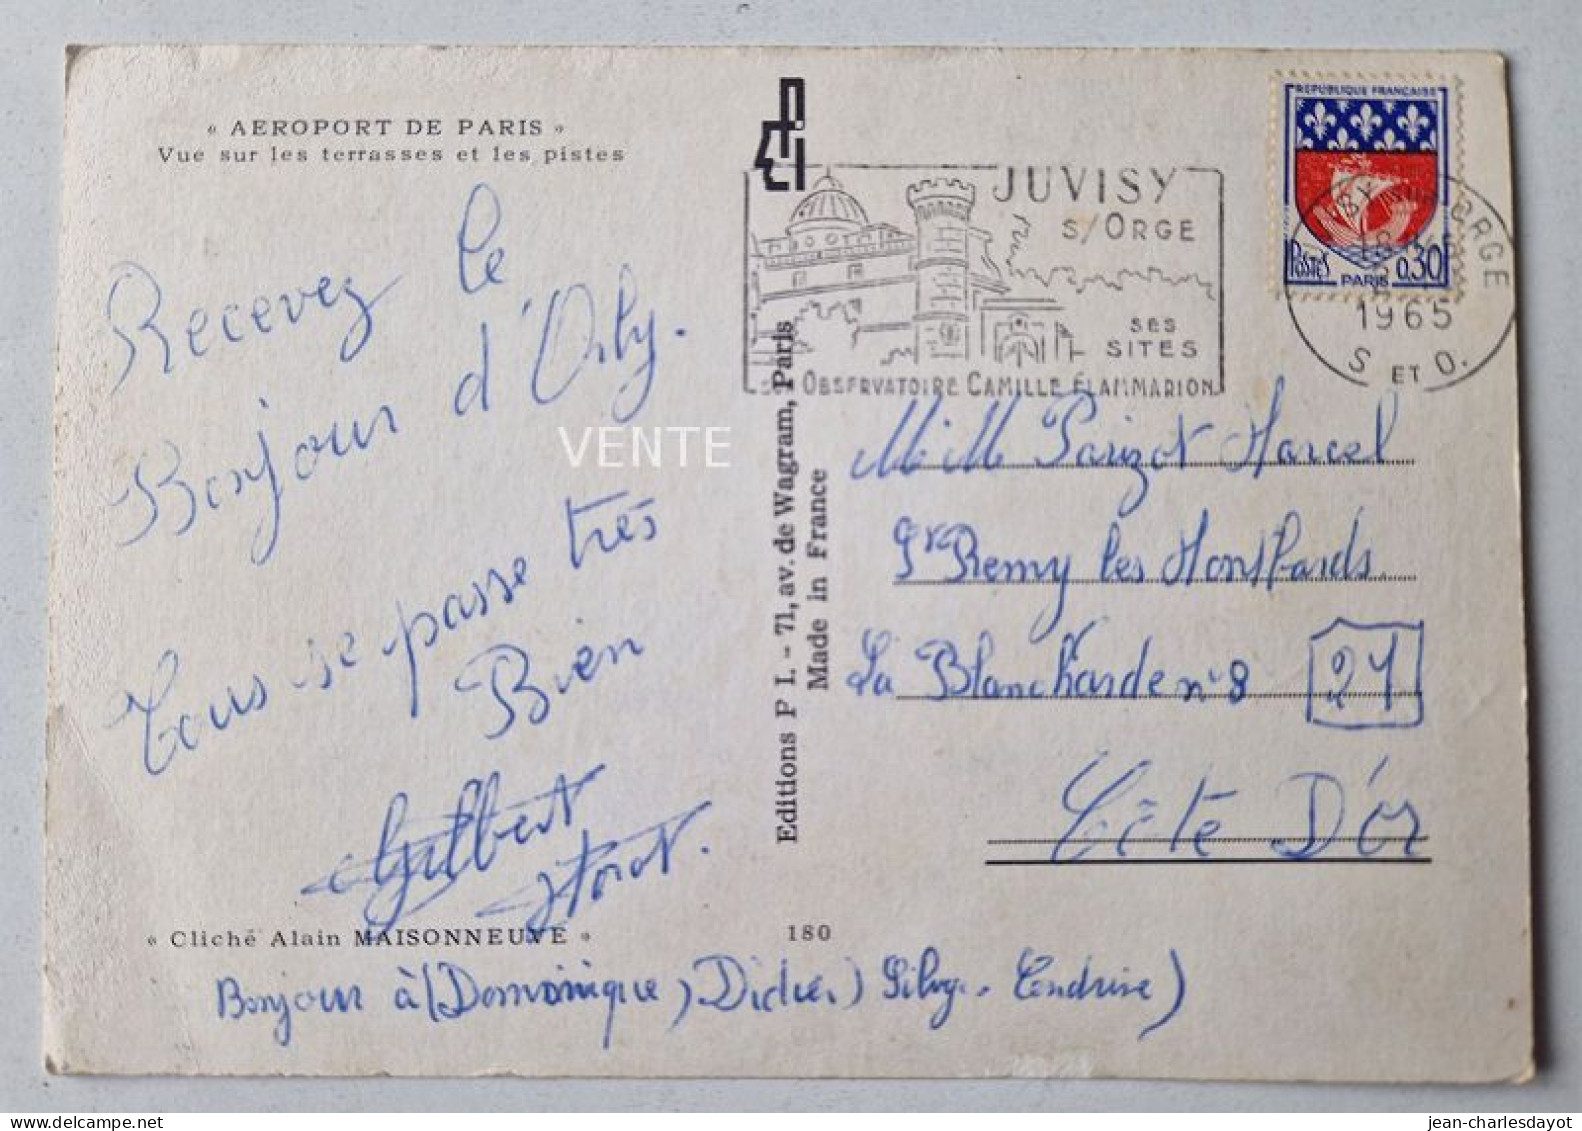 « AEROPORT DE PARIS »
Vue sur les terrasses et les pistes
Recevez le
Bonjour d'Orly.
Tous se passe très
Bien
Gilbert
« Cliché Alain MAISONNEUVE »
Bonjour à (Dominique, Didier,
VENTE
Editions P I. - 71, av. de Wagram, Paris
Made in France
180
JUVISY
S/ORGE
SES
SITES
OBSERVATOIRE CAMILLE FLAMMARION
REPUBLIQUE FRANÇAISE
POSTES
PARIS
0,30
ORGE
1965
S. ET O.
Parizot Marcel
Remy les Montbards
La Blancharde n° 8
21
Côte D'or
delcampe.net
jean-charlesdayot